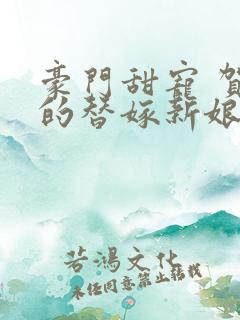 豪門甜寵 賀
的替嫁新娘
若鴻文化
未任同意禁止轉載